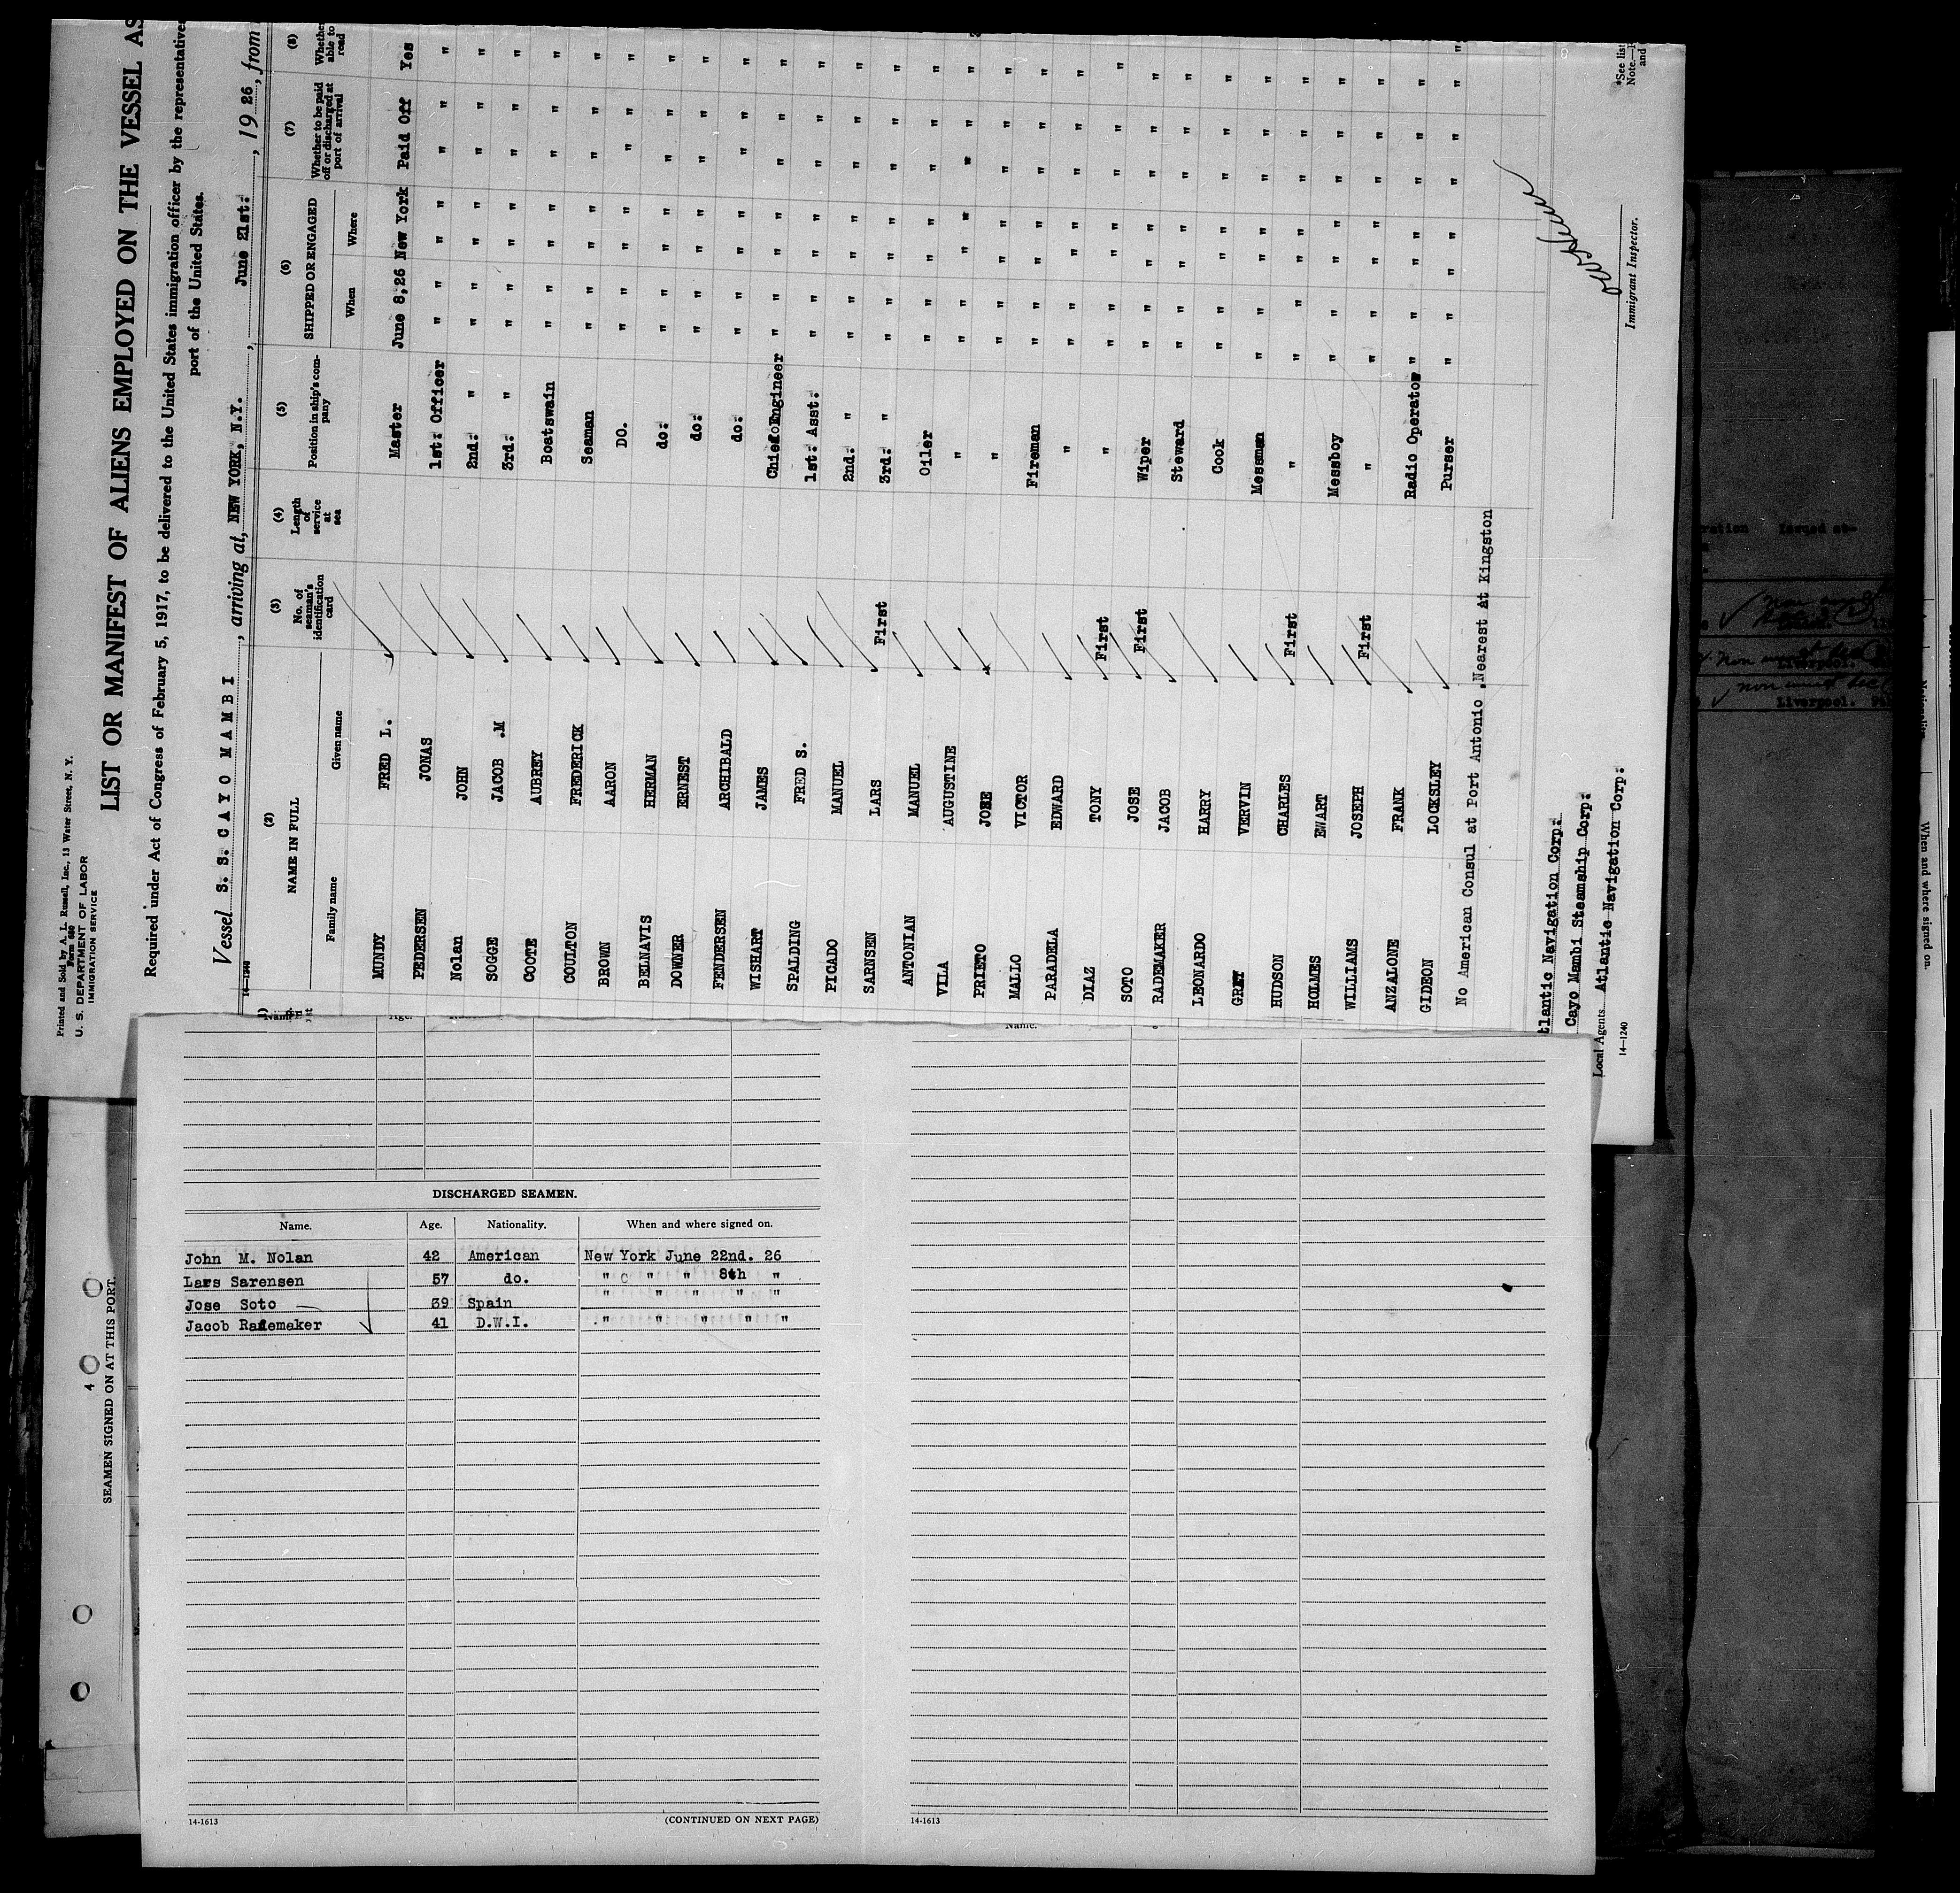 Printed and Sold by A. L. Russell, Inc., 13 Water Street, N. Y.
Form 680
U. S. DEPARTMENT OF LABOR
IMMIGRATION SERVICE
LIST OR MANIFEST OF ALIENS EMPLOYED ON THE VESSEL AS
Required under Act of Congress of February 5, 1917, to be delivered to the United States immigration officer by the representative
port of the United States.
Vessel S. S. CAYO MAMBI, arriving at, NEW YORK, N.Y., June 21st:, 1926, from
14-1240
(2) (3) (4) (5) (6) (7) (8)
NAME IN FULL No. of seaman's identification card Length of service at sea Position in ship's company SHIPPED OR ENGAGED Whether to be paid off or discharged at port of arrival Whether able to read
Family name Given name When Where
MUNDY FRED L. Master June 8,26 New York Paid Off Yes
PEDERSEN JONAS 1st: Officer " " " " " " "
Nolan JOHN 2nd: " " " " " " " "
SOGGE JACOB .M 3rd: " " " " " " " "
COOTE AUBREY Boatswain " " " " " " "
COULTON FREDERICK Seaman " " " " " " "
BROWN AARON DO. " " " " " " "
BELNAVIS HERMAN do: " " " " " " "
DOWNER ERNEST do: " " " " " " "
FENDERSEN ARCHIBALD do: " " " " " " "
WISHART JAMES Chief Engineer " " " " " " "
SPALDING FRED S. 1st: Asst: " " " " " " "
PICADO MANUEL 2nd: " " " " " " " "
SARNSEN LARS First 3rd: " " " " " " " "
ANTONIAN MANUEL Oiler " " " " " " "
VILA AUGUSTINE " " " " " " " "
PRIETO JOSE " " " " " " " "
MALLO VICTOR Fireman " " " " " " "
PARADELA EDWARD " " " " " " " "
DIAZ TONY First " " " " " " " "
SOTO JOSE First Wiper " " " " " " "
RADEMAKER JACOB Steward " " " " " " "
LEONARDO HARRY Cook " " " " " " "
GREY VERVIN Messman " " " " " " "
HUDSON CHARLES First " " " " " " " "
HOLMES EWART Messboy " " " " " " "
WILLIAMS JOSEPH First " " " " " " " "
ANZALONE FRANK Radio Operator " " " " " " "
GIDEON LOCKSLEY Purser " " " " " " "
No American Consul at Port Antonio .Nearest at Kingston
tlantic Navigation Corp:
Cayo Mambi Steamship Corp:
Local Agents. Atlantic Navigation Corp:
14-1240
Immigrant Inspector.
*See list
Note.
and
Name.
DISCHARGED SEAMEN.
Name. Age. Nationality. When and where signed on.
John M. Nolan 42 American New York June 22nd. 26
Lars Sarensen 57 do. " " " 8th "
Jose Soto 39 Spain " " " " "
Jacob Rademaker 41 D.W.I. " " " " "
14-1613 (CONTINUED ON NEXT PAGE) 14-1613
4
SEAMEN SIGNED ON AT THIS PORT.
Issued at-
Liverpool.
Liverpool.
When and where signed on.